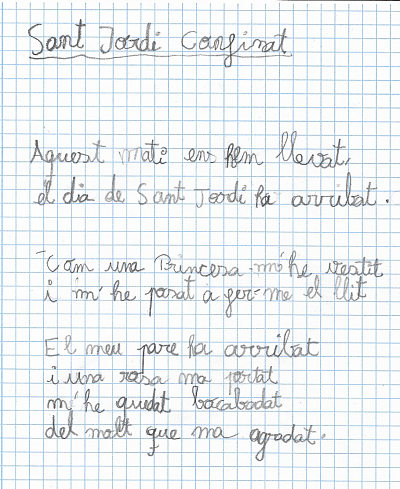 Sant Jordi Confinat
Aquest matí ens hem llevat,
el dia de Sant Jordi ha arribat.
Com una Princesa m'he vestit
i m'he posat a fer-me el llit
El meu pare ha arribat
i una rosa ma portat
m'he quedat bocabadat
del molt que ma agradat.